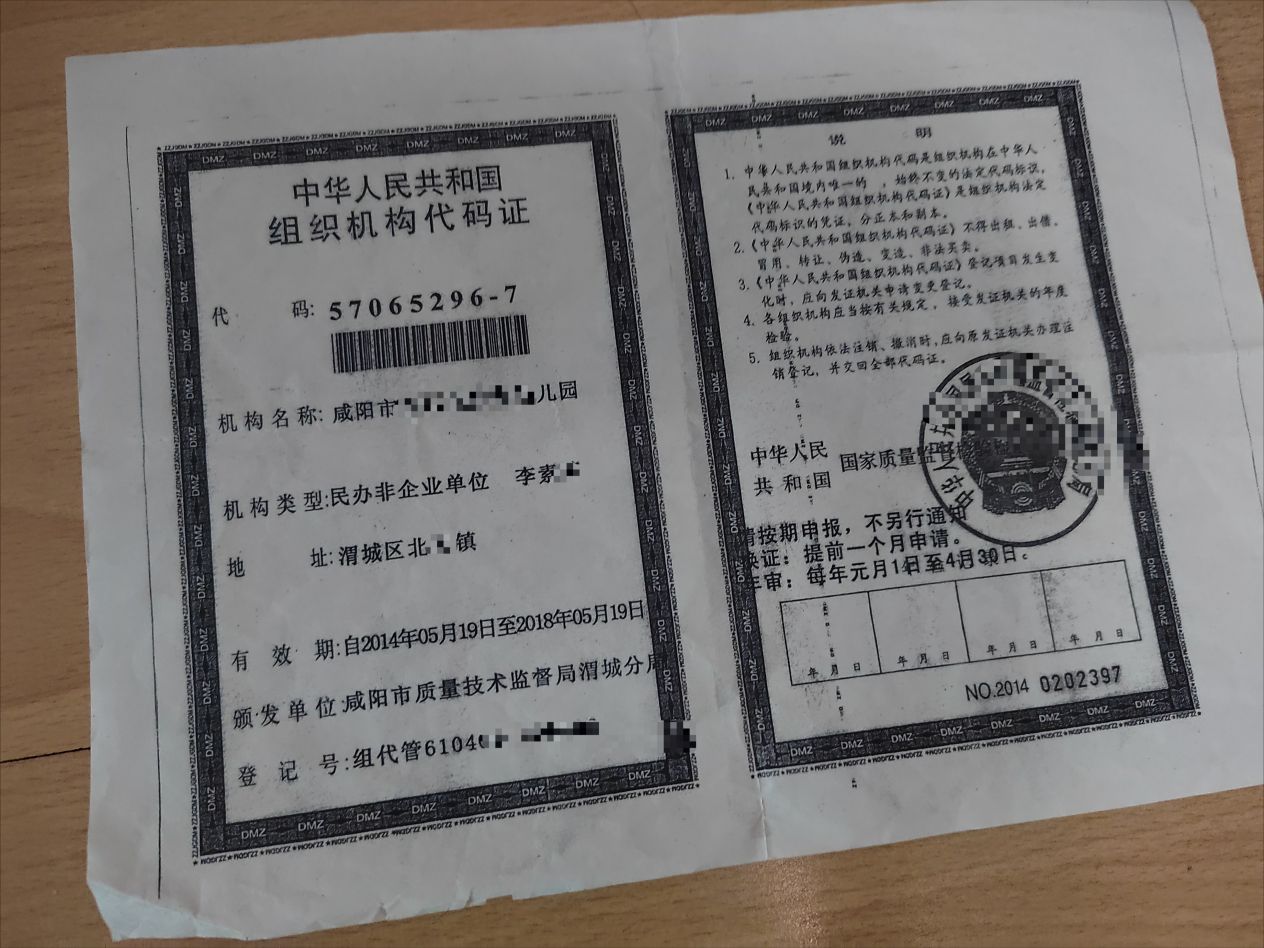 中华人民共和国
组织机构代码证
代 码: 57065296-7
机构名称: 咸阳市 儿园
机构类型:民办非企业单位 李素
地 址:渭城区北 镇
有 效 期:自2014年05月19日至2018年05月19日
颁发单位:咸阳市质量技术监督局渭城分局
登 记 号:组代管6104
说 明
1. 中华人民共和国组织机构代码是组织机构在中华人
民共和国境内唯一的 ,始终不变的法定代码标识,
《中华人民共和国组织机构代码证》是组织机构法定
代码标识的凭证,分正本和副本。
2.《中华人民共和国组织机构代码证》不得出租、出借、
冒用、转让、伪造、变造、非法买卖。
3.《中华人民共和国组织机构代码证》登记项目发生变
化时,应向发证机关申请变更登记。
4. 各组织机构应当按有关规定,接受发证机关的年度
检验。
5. 组织机构依法注销、撤消时,应向原发证机关办理注
销登记,并交回全部代码证。
中华人民
共 和 国 国家质量监督检验检
请按期申报,不另行通知
换证:提前一个月申请。
年审:每年元月1日至4月30日。
年 月 日 年 月 日 年 月 日 年 月 日
NO.2014 0202397